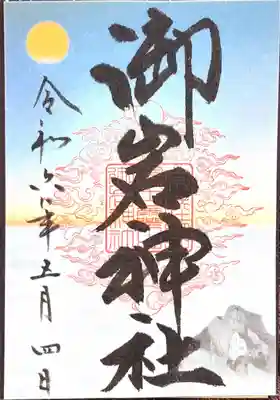 御岩神社
令和六年五月四日